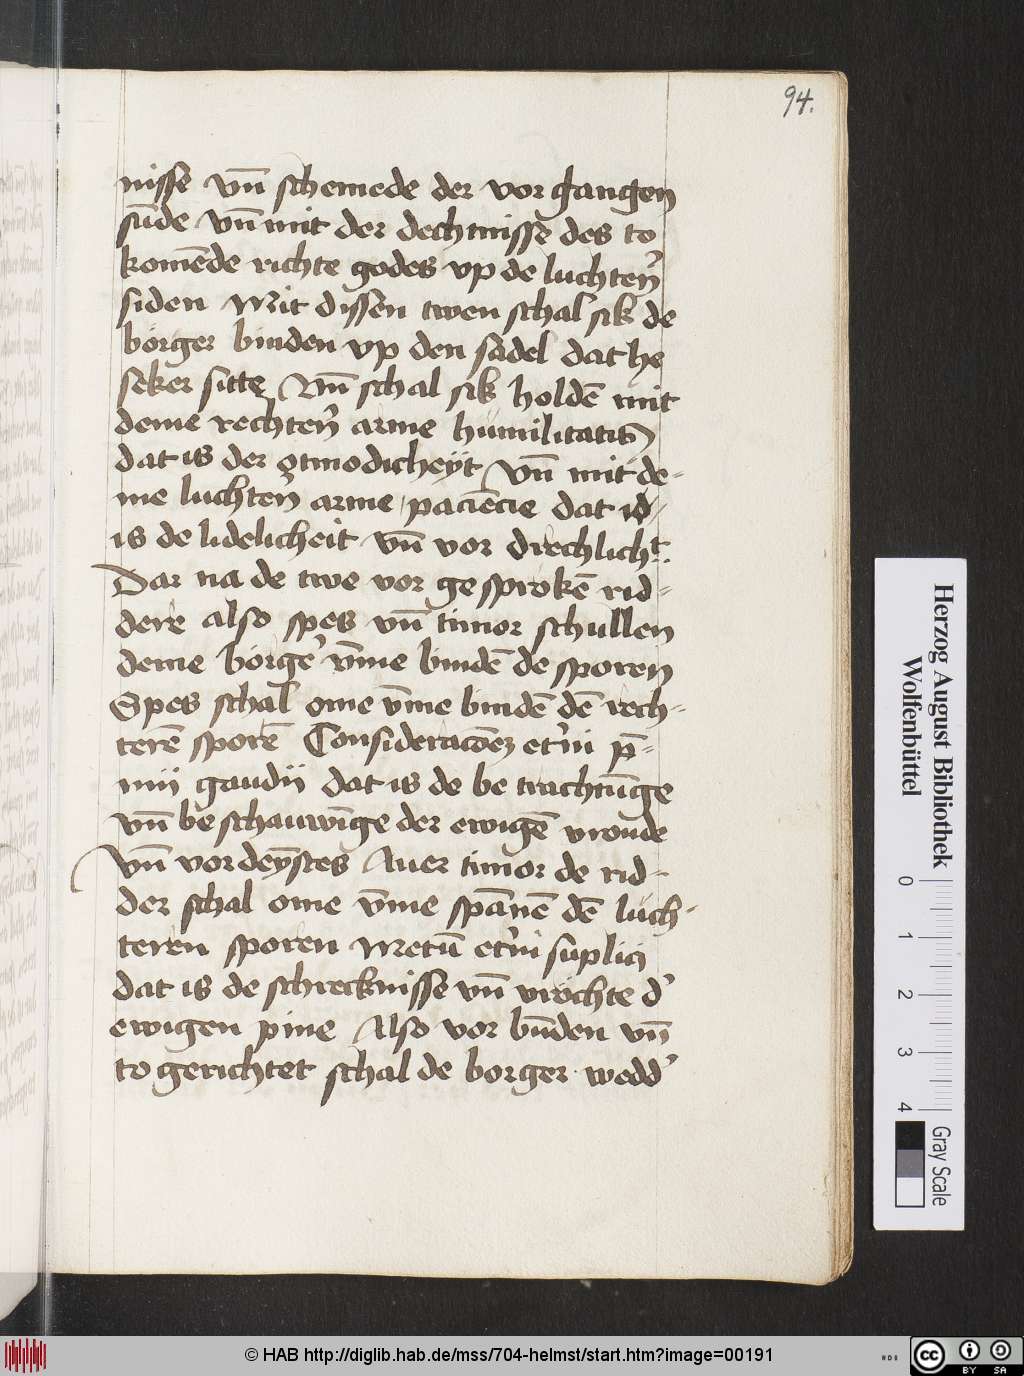 94.
nisse vn̄ schemede der vor gangen
sūde vn̄ mit der dechtnisse des to
komēde richte godes vp de luchterͤ
siden Mit dissen twen schal sik de
borger binden vp den sadel dat he
seker sitte Vn̄ schal sik holdē mit
deme rechterͤ arme humilitatis
dat is der otmodicheyt Vn̄ mit de-
me luchterͤ arme paciēcie dat id-
is de lidelicheit vn̄ vor drechlicht
Dar na de twe vor ge sprokē rid-
dere also spes vn̄ timor schullen
deme borgeʾ v̄me bindē de sporen
Spes schal ome v̄me bindē dē rech-
terē sporē Consideracōeꝫ etʾni p̄-
mij gaudij dat is de be trachtūge
vn̄ be schauwīge der ewigē vronde
vn̄ vor deystes Auer timor de rid-
der schal ome v̄me spānē dē luch-
teren sporen Metū etʾni suplicij
dat is de schrecknisse vn̄ vrochte dʾ
ewigen pine Also vor būden vn̄
to gerichtet schal de borger weddʾ
Herzog August Bibliothek
Wolfenbüttel
0 1 2 3 4
Gray Scale
© HAB http://diglib.hab.de/mss/704-helmst/start.htm?image=00191
cc BY SA